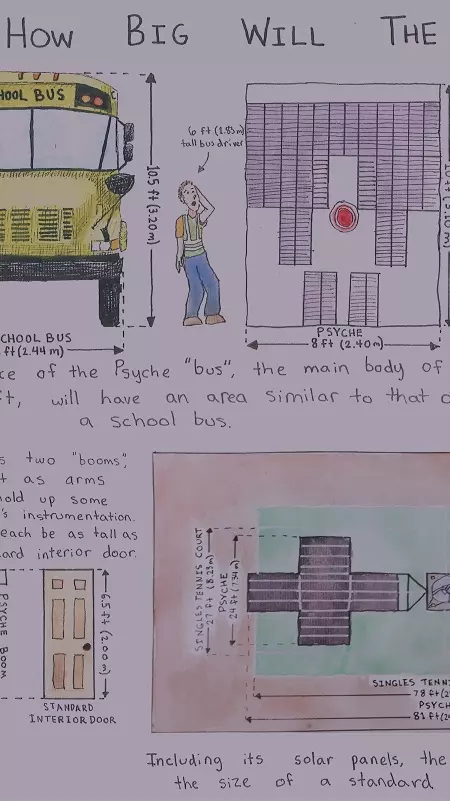 HOW BIG WILL THE
HOOL BUS
10.5 ft (3.20m)
6 ft (1.83m)
tall bus driver
CHOOL BUS
ft (2.44 m)
PSYCHE
8 ft (2.40m)
ce of the Psyche "bus", the main body of
ft, will have an area similar to that o
a school bus.
s two "booms",
t as arms
hold up some
's instrumentation.
each be as tall as
ard interior door.
PSYCHE BOOM
6.5 ft (2.00m)
STANDARD
INTERIOR DOOR
SINGLES TENNIS COURT
27 ft (8.23m)
PSYCHE
24 ft (7.34m)
SINGLES TENNI
78 ft (2
PSYCH
81 ft (2
Including its solar panels, the
the size of a standard